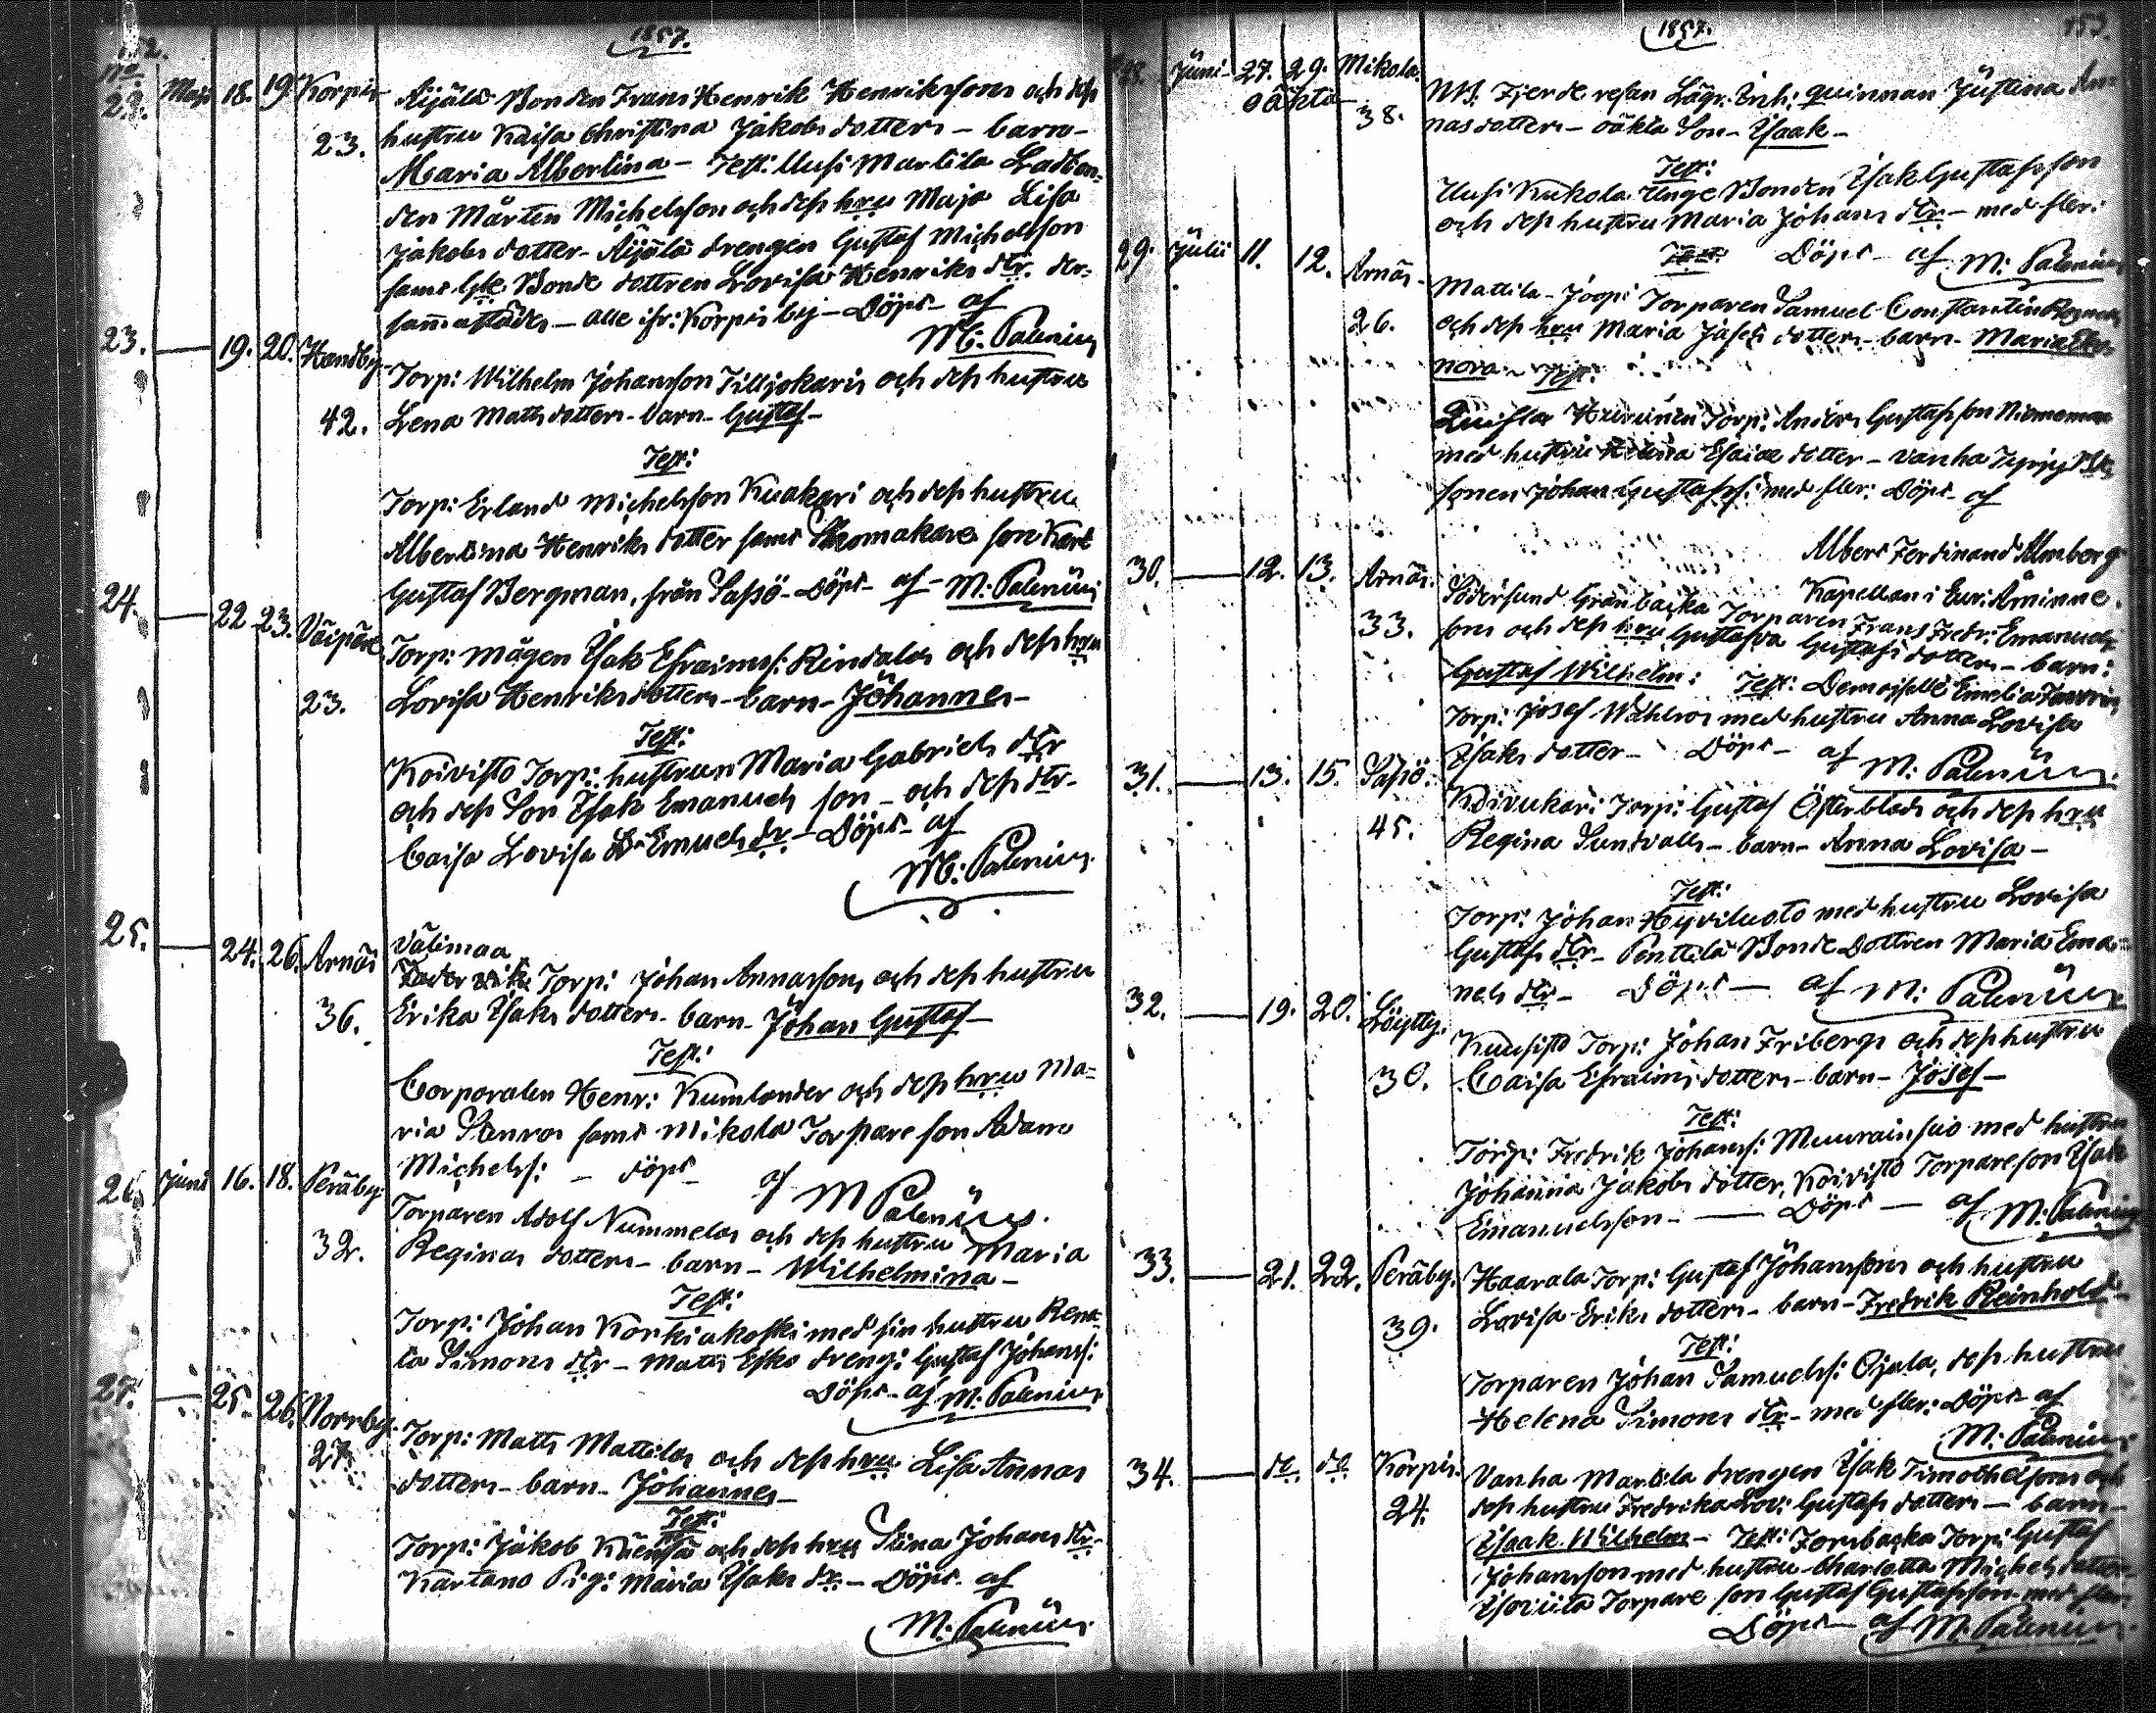 152.
1857.
No
22. Maji 18. 19. Korpis
Äijälä Bonden Frans Henrik Henriksons och dess
23. hustru Kaisa Christina Jakobsdotters - barn -
Maria Albertina - Test: Uusi Martila Ladbon-
den Mårten Michelsson och dess hru Maja Lisa
Jakobs dotter - Äijälä drengen Gustaf Michelsson
samt Bonde dottren Lovisa Henriks dtr. der-
sammastädes - alle ifr: Korpis by - Döpt - af
M: Palenius
23. — 19. 20. Handby
Torp: Wilhelm Johansson Tilljokaris och dess hustru
42. Lena Matts dotters - barn - Gustaf -
Test:
Torp: Erland Michelsson Kuakari och dess hustru
Albertina Henriks dotter samt Skomakare son Karl
Gustaf Bergman, från Sapsö - Döpt - af - M: Palenius
24. — 22 23. Väipäre
Torp: mågen Isak Efraimss: Rindalas och dess hru
23. Lovisa Henriksdotters - barn - Johannes -
Test:
Koivisto Torp: hustrun Maria Gabriels dtr
och dess Son Isak Emanuels son - och dess dtr -
Caisa Lovisa Emuels dr. - Döpt - af
M: Palenius
25. — 24. 26. Arnäs
Välimaa
Torp: Johan Annassons och dess hustru
36. Erika Isaks dotters - barn - Johan Gustaf -
Test:
Corporalen Henr: Kumlander och dess hru Ma-
ria Stenros samt Mikola Torpare son Adam
Michelss: - döpt - af M Palenius.
26. Juni 16. 18. Peräby
Torparen Adolf Nummelas och dess hustru Maria
32. Reginas dotters - barn - Wilhelmina -
Test:
Torp: Johan Korkiakoski med sin hustru Rena-
ta Simons dtr - Matts Esko dreng: Gustaf Johanss:
Döpt - af M: Palenius
27. — 25. 26. Norrby.
Torp: Matts Mattilas och dess hru Lisa Annas
27. dotters - barn - Johannes -
Test:
Torp: Jakob och dess hru Stina Johans dtr -
Kartano Pig: Maria Isaks dr. - Döpt - af
M: Palenius
153.
1857.
28. Juni 27. 29. Mikola.
oäkta
NB. Fjerde resan Lägr: Enk: quinnan Justina An-
38. nasdotters - oäkta Son - Isaak -
Test:
Uusi Kukola Unge Bonden Isak Gustafsson
och dess hustru Maria Johans dtr. - med fler:
Döpt - af M: Palenius
29. Julii 11. 12. Arnäs -
Mattila - Joopi Torparen Samuel Constantin
26. och dess hru Maria Josefs dotters - barn - Maria Eleo-
nora - Test:
Torp: Anders Gustafsson Niememaa
med hustru Esaiae dotter - Vanha
sonen Johan Gustafss: med fler: Döpt - af
Albert Ferdinand Almberg
Kapellan i Eur: Åminne.
30. — 12. 13. Arnäs.
Södersund Grönbacka Torparen Frans Fredr: Emanuels
33. sons och dess hru Gustafva Gustafs dotters - barn:
Gustaf Wilhelm: Test: Demoiselle Emelia
Torp: Josef Wahlros med hustru Anna Lovisa
Isaks dotter - Döpt - af M: Palenius.
31. — 13. 15. Sapsö:
Koivukari Torp: Gustaf Österblads och dess hru
45. Regina Sundvalls - barn - Anna Lovisa -
Test:
Torp: Johan Hyviluoto med hustru Lovisa
Gustafs dtr. - Penttilä Bonde Dottren Maria Ema-
nels dtr - Döpt - af M: Palenius
32. — 19. 20. Löytty.
Kuusisto Torp: Johan Fribergs och dess hustru
30. Caisa Efraimsdotters - barn - Josef -
Test:
Torp: Fredrik Johanss: Muurainsuo med hustru
Johanna Jakobs dotter, Koivisto Torpareson Isak
Emanuelsson - — Döpt — af M: Palenius
33. — 21. 22. Peräby.
Haarala Torp: Gustaf Johanssons och hustru
39. Lovisa Eriks dotters - barn - Fredrik Reinhold -
Test:
Torparen Johan Samuelss: Ojala, dess hustru
Helena Simons dtr. - med fler: Döpt - af
M: Palenius
34. — do. do. Korpis.
Vanha Martila drengen Isak Timothessons och
24. dess hustru Fredrika Lov: Gustafs dotters - barn -
Isaak Wilhelm - Test: Tornbacka Torp: Gustaf
Johansson med hustru Charlotta Michels dotter -
Torpare son Gustaf Gustafsson - med fler
Döpt - af M. Palenius.